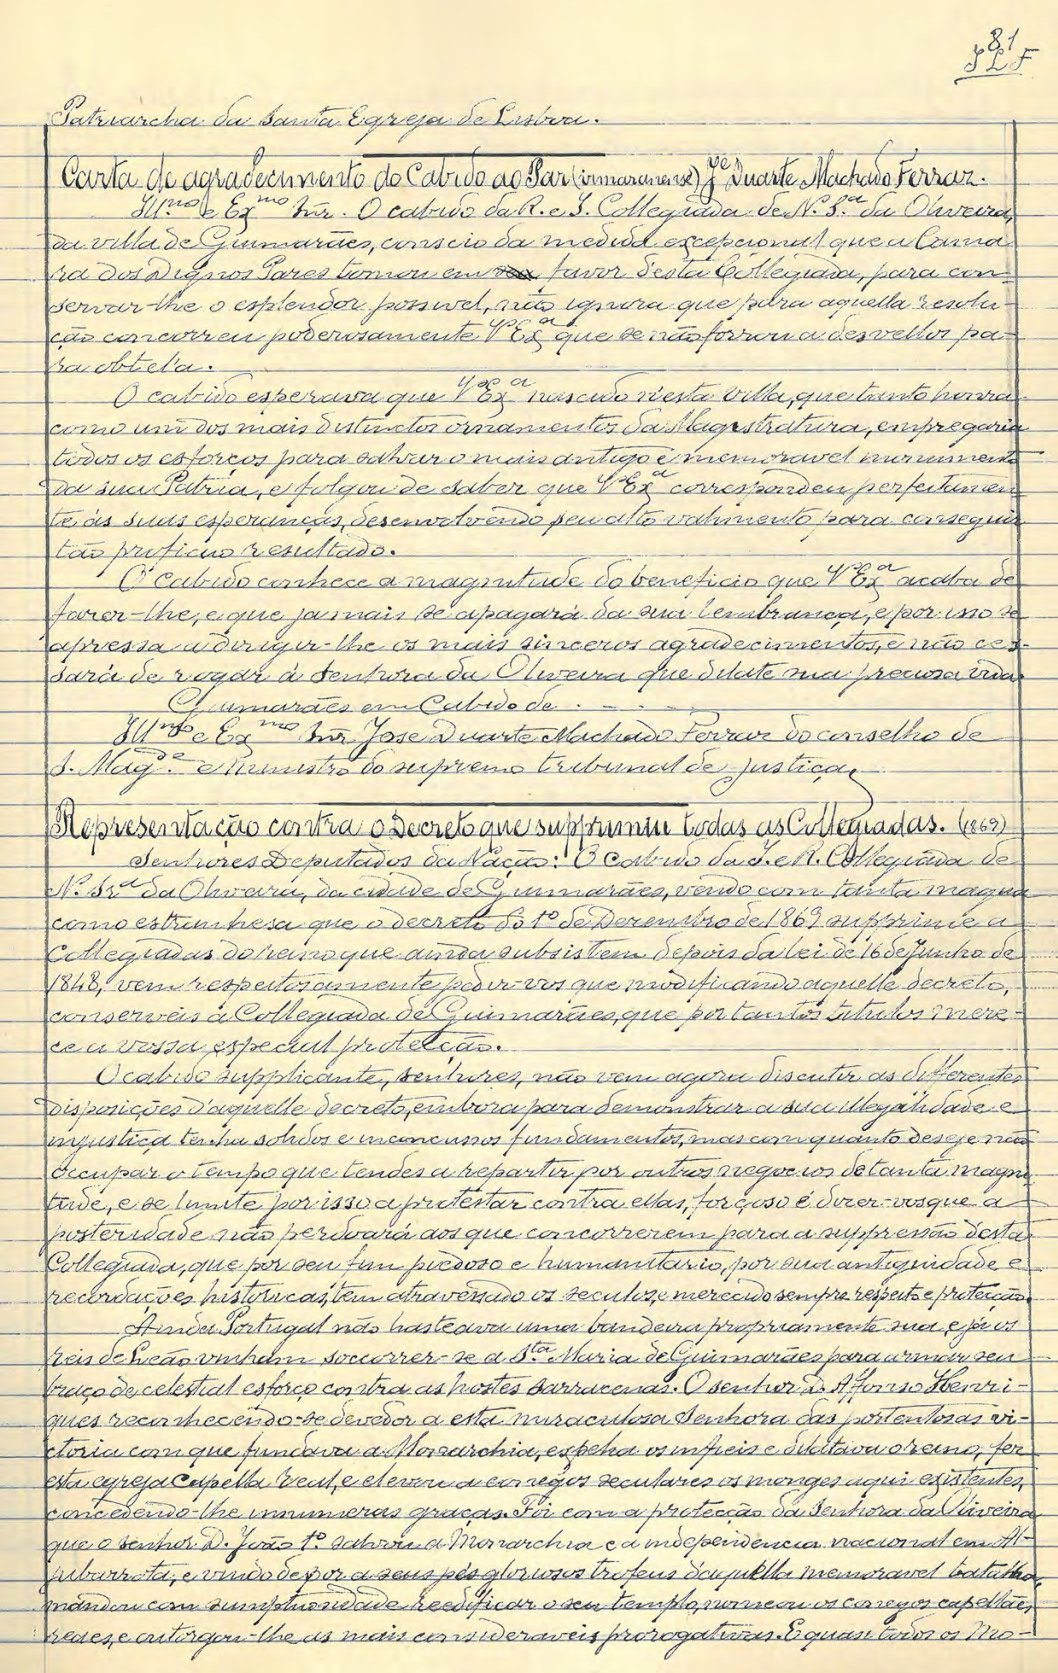 81
JLF
Patriarcha da Santa Egreja de Lisboa.
Carta de agradecimento do Cabido ao Par (vimaranense) Jé Duarte Machado Ferraz.
Ill.mo e Ex.mo Snr. O cabido da R. e I. Collegiada de N. S.ra da Oliveira,
da villa de Guimarães, conscio da medida excepcional que a Cama-
ra dos Dignos Pares tomou em favor desta Collegiada, para con-
servar-lhe o esplendor possivel, não ignora que para aquella resolu-
ção concorreu poderosamente V. Ex.a que se não forrou a desvellos pa-
ra obtel'a.
O cabido esperava que V. Ex.a nascido n'esta villa, que tanto honra
como um dos mais distinctos ornamentos da Magistratura, empregaria
todos os esforços para salvar o mais antigo e memoravel monumento
da sua Patria, e folgou de saber que V. Ex.a correspondeu perfeitamen-
te ás suas esperanças, desenvolvendo seu alto valimento para conseguir
tão proficuo resultado.
O Cabido conhece a magnitude do beneficio que V. Ex.a acaba de
fazer-lhe, e que jamais se apagará da sua lembrança, e por isso se
apressa a dirigir-lhe os mais sinceros agradecimentos, e não ces-
sará de rogar á Senhora da Oliveira que dilate sua preciosa vida.
Guimarães em Cabido de . - - .
Ill.mo e Ex.mo Snr José Duarte Machado Ferraz do conselho de
S. Mag.de e Ministro do supremo tribunal de justiça,
Representação contra o Decreto que supprimiu todas as Collegiadas. (1869)
Senhores Deputados da Nação: O Cabido da I. e R. Collegiada de
N. Sr.a da Oliveira, da cidade de Guimarães, vendo com tanta magua
como estranhesa que o decreto do 1º de Dezembro de 1869 supprime a
Collegiadas do reino que ainda subsistem depois da lei de 16 de Junho de
1848, vem respeitosamente pedir-vos que modificando aquelle decreto,
conserveis a Collegiada de Guimarães, que por tantos titulos mere-
ce a vossa especial protecção.
O cabido supplicante, senhores, não vem agora discutir as differentes
disposições d'aquelle decreto, embora para demonstrar a sua illegalidade e
injustiça tenha solidos e inconcussos fundamentos, mas com quanto deseje não
occupar o tempo que tendes a repartir por outros negocios de tanta magni-
tude, e se limite por isso a protestar contra ellas, forçoso é dizer-vos que a
posteridade não perdoará aos que concorrerem para a suppressão desta
Collegiada, que por seu fim piedoso e humanitario, por sua antiguidade e
recordações historicas, tem atravessado os seculos, e merecido sempre respeito e protecção.
Ainda Portugal não hasteava uma bandeira propriamente sua, e já os
reis de Leão vinham soccorrer-se a S.ta Maria de Guimarães para armar seu
braço de celestial esforço contra as hostes sarracenas. O senhor D. Affonso Henri-
ques reconhecendo-se devedor a esta miraculosa Senhora das portentosas vi-
ctoria com que fundava a Monarchia, expelia os infieis e dilatava o reino, fez
esta egreja Capella real, e elevou a conegos seculares os monges aqui existentes,
concedendo-lhe innumeras graças. Foi com a protecção da Senhora da Oliveira
que o senhor D. João 1º salvou a Monarchia e a independencia nacional em Al-
jubarrota, e vindo depôr a seus pés gloriosos trofeus d'aquella memoravel batalha,
mandou com sumptuosidade reedificar o seu templo, nomeou os conegos capellães,
reaes, e outorgou-lhe as mais consideraveis prorogativas. E quasi todos os Mo-